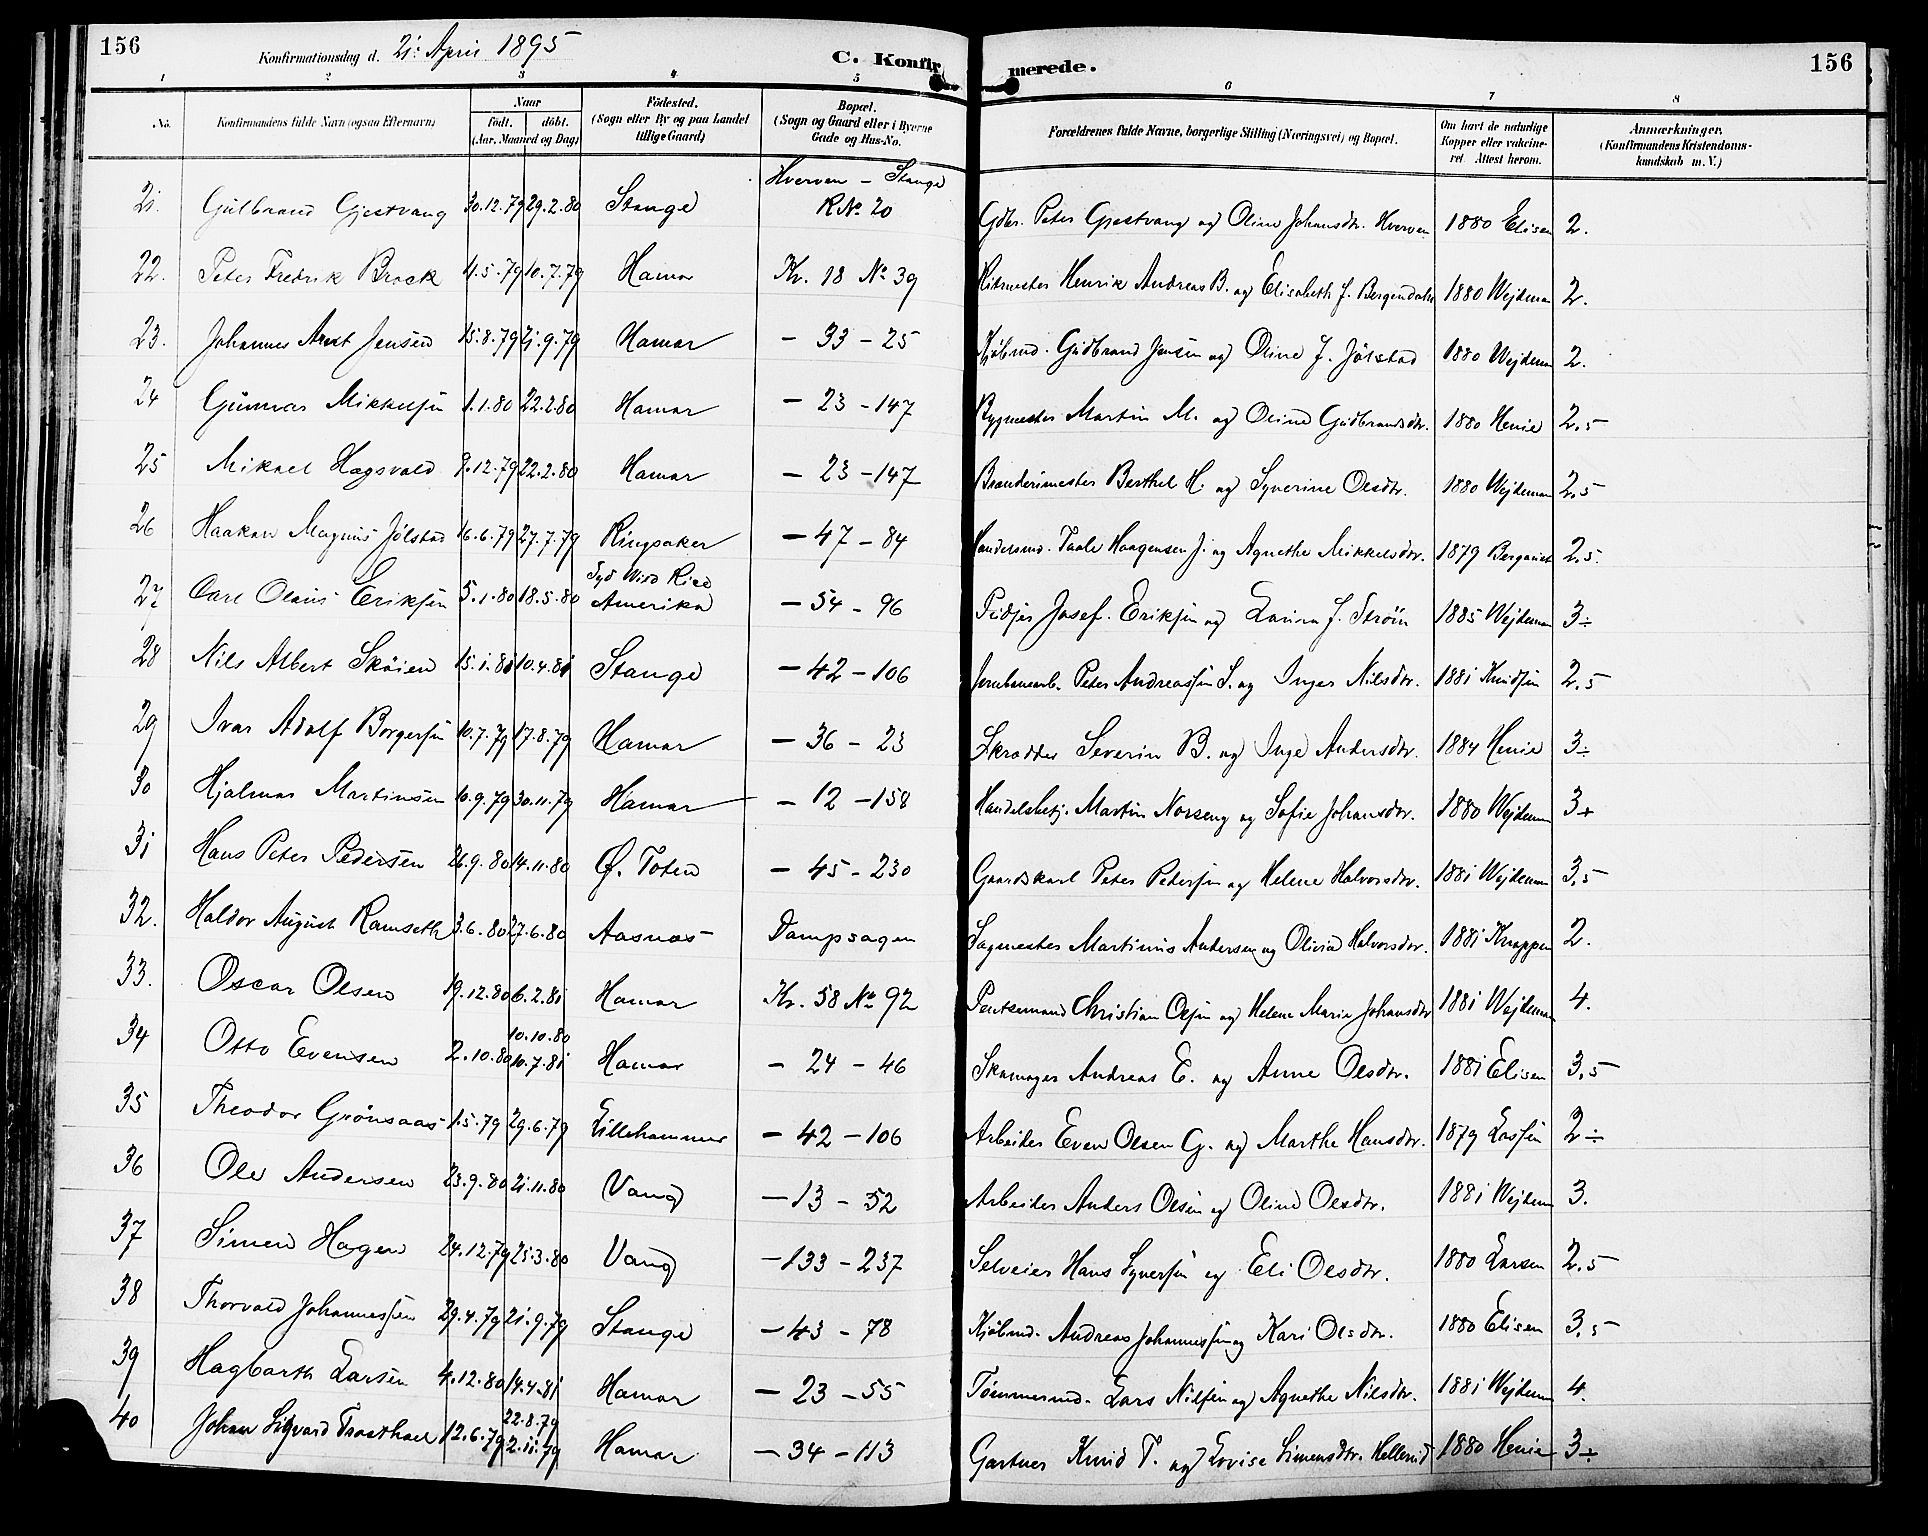 156
Konfirmationsdag d. 21: April 1895
C. Konfirmerede.
156
1 2 3 4 5 6 7 8
No. Konfirmandens fulde Navn (ogsaa Efternavn) Naar født. døbt. (Aar, Maaned og Dag) Fødested. (Sogn eller By og paa Landet tillige Gaard) Bopæl. (Sogn og Gaard eller i Byerne Gade og Hus-No. Forældrenes fulde Navne, borgerlige Stilling (Næringsvei) og Bopæl. Om havt de naturlige Kopper eller vakcineret. Attest herom. Anmærkninger. (Konfirmandens Kristendomskundskab m. V.)
21. Gulbrand Gjestvang 30.12.79 29.2.80 Stange Hverven – Stange R No. 20 Gdbr. Peter Gjestvang og Oline Johansdtr. Hverven 1880 Elisen 2.
22. Peter Fredrik Brock 4.5.79 10.7.79 Hamar Kv. 18 No. 39 Henrik Andreas B. og Elisabeth J. Bergendahl 1880 Wejdeman 2.
23. Johannes Arnt Jensen 15.8.79 21.9.79 Hamar – 33 – 25 Kjøbmd. Gudbrand Jensen og Oline J. Jølstad 1880 Wejdeman 2.
24 Gunnar Mikkelsen 1.1.80 22.2.80 Hamar – 23 – 147 Bygmester Martin M. og Oline Gudbrandsdtr. 1880 Henie 2,5
25 Mikael Hagsvold 9.12.79 22.2.80 Hamar – 23 – 147 Brænderimester Berthel H. og Syverine Olsdtr. 1880 Wejdeman 2,5
26 Haakon Magnus Jølstad 16.6.79 27.7.79 Ringsaker – 47 – 84 Handelsmd. Taale Haagensen J. og Agnethe Mikkelsdtr. 1879 2,5.
27 Carl Olaus Eriksen 5.1.80 18.5.80 Amerika – 54 – 96 Pudser Josef Eriksen og Laura J. Strøm 1885 Wejdeman 3÷
28 Nils Albert Skøien 15.1.81 10.4.81 Stange – 42 – 106 Jernbanearb. Peter Andreassen S. og Inger Nilsdtr. 1881 Knudsen 2,5
29 Ivar Adolf Borgersen 10.7.79 17.8.79 Hamar – 36 – 23 Skrædder Severin B. og Inge Andersdtr. 1884 Henie 3÷
30 Hjalmar Martinsen 10.9.79 30.11.79 Hamar – 12 – 158 Handelsbetj. Martin Norseng og Sofie Johansdtr. 1880 Wejdeman 3+
31 Hans Peter Pedersen 26.9.80 14.11.80 Ø. Toten – 45 – 230 Gaardskarl Peter Petersen og Helene Halvorsdtr. 1881 Wejdeman 3,5
32. Haldor August Ramseth 3.6.80 27.6.80 Aasnæs Dampsagen Sagmester Martinus Andersen og Olivia Halvorsdtr. 1881 Knappen 2.
33. Oscar Olsen 19.12.80 6.2.81 Hamar Kv. 58 No. 92 Christian Olsen og Helene Marie Johansdtr 1881 Wejdeman 4.
34 Otto Evensen 2.10.80 10.10.80 10.7.81 Hamar – 24 – 46 Skomager Andreas E. og Anne Olsdtr. 1881 Elisen 3,5
35 Theodor Grønsaas 1.5.79 29.6.79 Lillehammer – 42 – 106 Arbeider Even Olsen G. og Marthe Hansdtr. 1879 Lassen 2÷
36 Ole Andersen 23.9.80 21.11.80 Vang – 13 – 52 Arbeider Anders Olsen og Oline Olsdtr. 1881 Wejdeman 3.
37 Simen Hagen 24.12.79 25.3.80 Vang – 133 – 237 Selveier Hans Syversen og Eli Olsdtr. 1880 Larsen 2,5
38 Thorvald Johannessen 29.4.79 21.9.79 Stange – 43 – 78 Kjøbmd. Andreas Johannessen og Kari Olsdtr. 1880 Elisen 3,5
39 Hagbarth Larsen 4.12.80 14.4.81 Hamar – 23 – 55 Tømmermd. Lars Nilsen og Agnethe Nilsdtr. 1881 Wejdeman 4.
40 Johan Sigvard Traathael 12.6.79 22.8.79 2.11.79 Hamar – 34 – 113 Gartner Knud T. og Lovise Simensdtr. Hellerud 1880 Henie 3÷